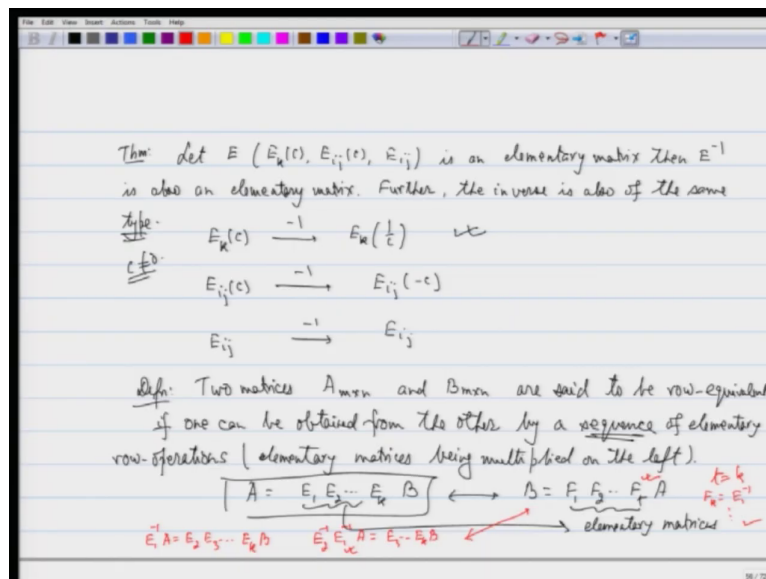 File Edit View Insert Actions Tools Help
B I
Thm: Let E ( E_k(c), E_ij(c), E_ij ) is an elementary matrix then E^-1
is also an elementary matrix. Further, the inverse is also of the same
type.
E_k(c) --(-1)--> E_k(1/c)
c≠0.
E_ij(c) --(-1)--> E_ij(-c)
E_ij --(-1)--> E_ij
Defn: Two matrices A_m×n and B_m×n are said to be row-equivalent
if one can be obtained from the other by a sequence of elementary
row-operations ( elementary matrices being multiplied on the left ).
A = E_1 E_2 ... E_k B <--> B = F_1 F_2 ... F_t A
t = k
F_k = E_1^-1
elementary matrices
E_1^-1 A = E_2 E_3 ... E_k B
E_2^-1 E_1^-1 A = E_3 ... E_k B